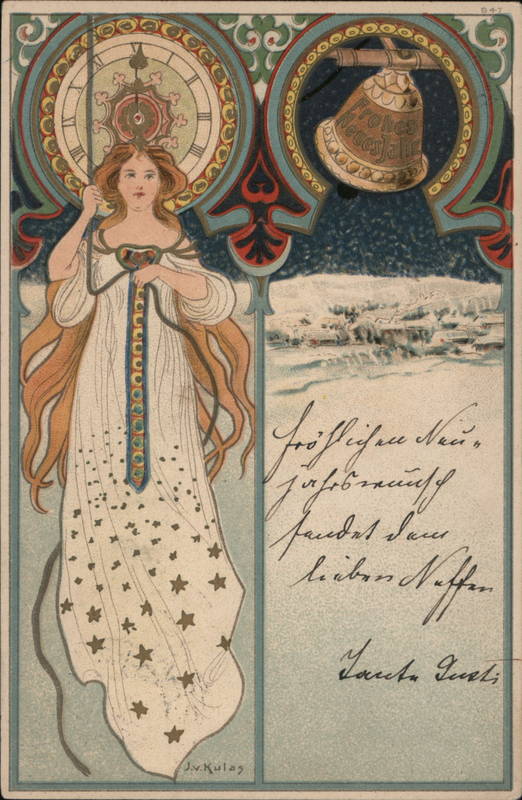 847
Frohes
Neues Jahr
fröhlichen Neu-
jahrswunsch
sendet dem
lieben Neffen
Tante Gusti
J.v.Kulas